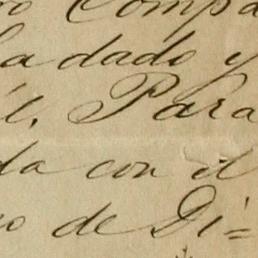 ro Compa
ha dado y
l. Para
da con el
no de Di=